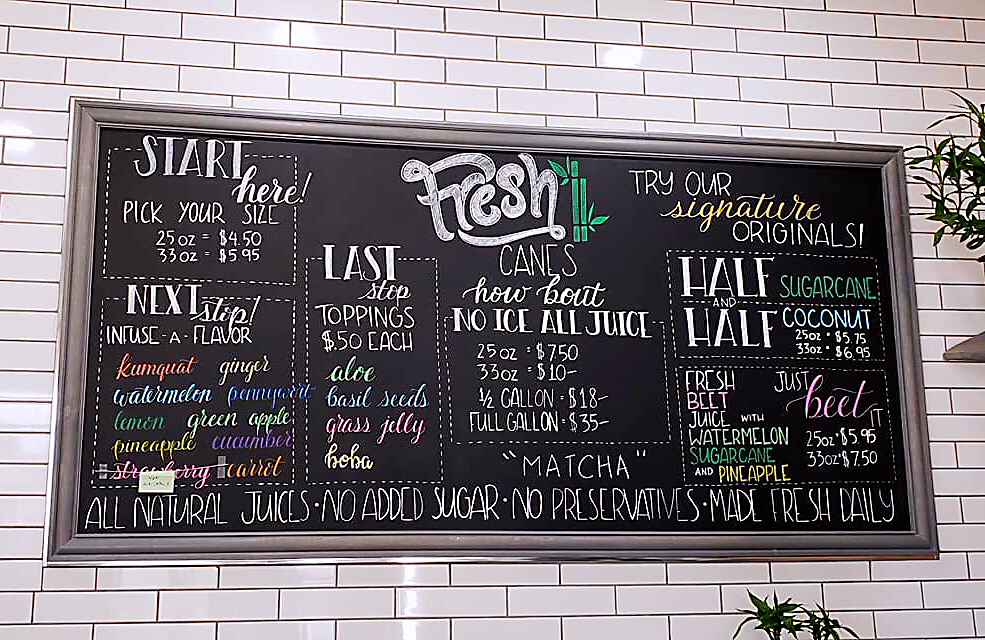 START
here!
PICK YOUR SIZE
25 oz = $4.50
33 oz = $5.95
NEXT
stop!
INFUSE-A-FLAVOR
kumquat ginger
watermelon pennywort
lemon green apple
pineapple cucumber
strawberry carrot
LAST
stop
TOPPINGS
$.50 EACH
aloe
basil seeds
grass jelly
boba
Fresh
CANES
how bout
NO ICE ALL JUICE
25 oz = $7.50
33 oz = $10-
½ GALLON - $18-
FULL GALLON - $35-
"MATCHA"
TRY OUR
signature
ORIGINALS!
HALF SUGARCANE
AND
HALF COCONUT
25oz • $5.75
33oz • $6.95
FRESH
BEET
JUICE WITH
WATERMELON
SUGARCANE
AND PINEAPPLE
JUST
beet
IT
25oz • $5.95
33oz • $7.50
ALL NATURAL JUICES • NO ADDED SUGAR • NO PRESERVATIVES • MADE FRESH DAILY